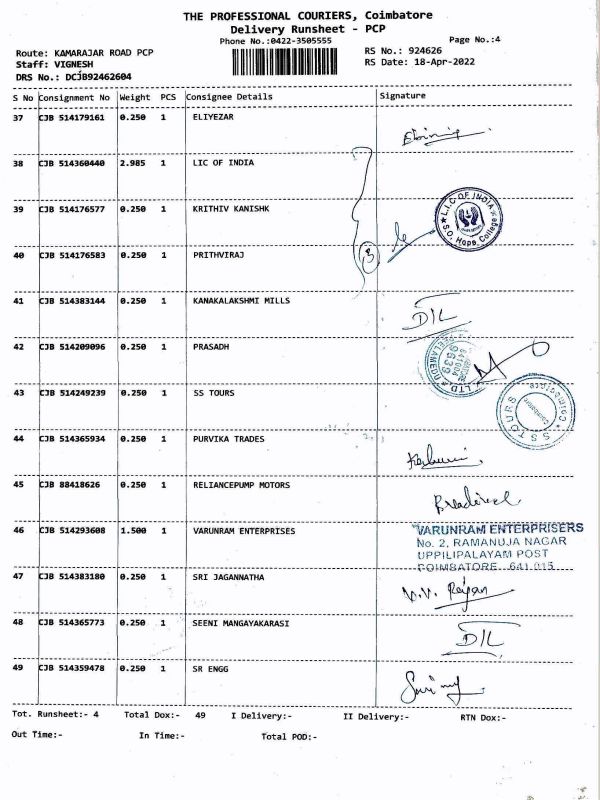 THE PROFESSIONAL COURIERS, Coimbatore
Delivery Runsheet - PCP
Phone No.:0422-3505555
Page No.:4
Route: KAMARAJAR ROAD PCP
RS No.: 924626
Staff: VIGNESH
RS Date: 18-Apr-2022
DRS No.: DCJB92462604
S No Consignment No Weight PCS Consignee Details Signature
37 CJB 514179161 0.250 1 ELIYEZAR
38 CJB 514360440 2.985 1 LIC OF INDIA
39 CJB 514176577 0.250 1 KRITHIV KANISHK
L.I.C OF INDIA
S.O. Hope College
40 CJB 514176583 0.250 1 PRITHVIRAJ
3
41 CJB 514383144 0.250 1 KANAKALAKSHMI MILLS
D/L
42 CJB 514209096 0.250 1 PRASADH
43 CJB 514249239 0.250 1 SS TOURS
S S TOURS
Coimbatore
44 CJB 514365934 0.250 1 PURVIKA TRADES
45 CJB 88418626 0.250 1 RELIANCEPUMP MOTORS
46 CJB 514293608 1.500 1 VARUNRAM ENTERPRISES
VARUNRAM ENTERPRISERS
No. 2, RAMANUJA NAGAR
UPPILIPALAYAM POST
COIMBATORE 641 015
47 CJB 514383180 0.250 1 SRI JAGANNATHA
48 CJB 514365773 0.250 1 SEENI MANGAYAKARASI
D/L
49 CJB 514359478 0.250 1 SR ENGG
Tot. Runsheet:- 4 Total Dox:- 49 I Delivery:- II Delivery:- RTN Dox:-
Out Time:- In Time:- Total POD:-